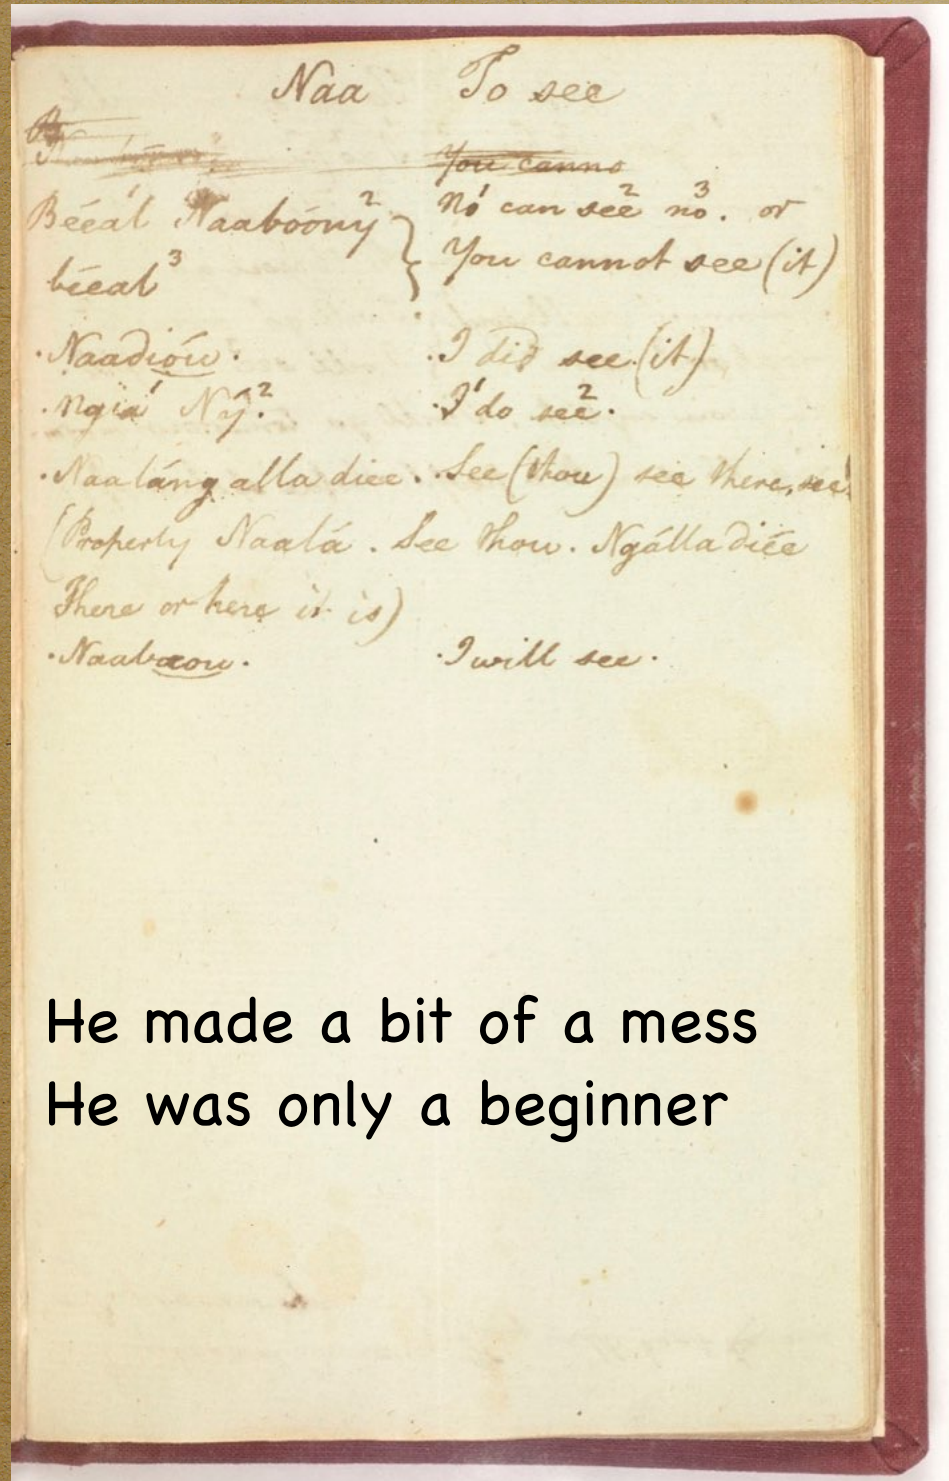 Naa To see
You canno
Bééál¹ Naabóóny² } Nó¹ can see² no³. or
bééal³ You cannot see (it)
·Naadióu· ·I did see (it)
·Ngia¹ Ný².  ·I¹ do see².
·Naaláng alla diee. ·See (thou) see there, see!
(Properly Naalá. See thou. Ngálla diée
There or here it is)
·Naabaou· ·I will see·
He made a bit of a mess
He was only a beginner